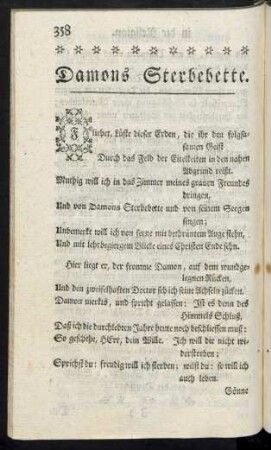 358
Damons Sterbebette.
Fliehet, Lüste dieser Erden, die ihr den folgsa-
samen Geist
Durch das Feld der Eitelkeiten in den nahen
Abgrund reißt.
Muthig will ich in das Zimmer meines grauen Freundes
dringen,
Und von Damons Sterbebette und von seinem Seegen
singen;
Unbemerkt will ich von ferne mit bethräntem Auge stehn,
Und mit lehrbegiergem Blicke eines Christen Ende sehn.
Hier liegt er, der fromme Damon, auf dem wundge-
legnen Rücken,
Und den zweifelhaften Doctor seh ich seine Achseln zücken.
Damon merkts, und spricht gelassen: Ist es denn des
Himmels Schluß,
Daß ich die durchlebten Jahre heute noch beschliessen muß:
So geschehe, HErr, dein Wille. Ich will dir nicht wi-
derstreben;
Sprichst du: freudig will ich sterben; willst du: so will ich
auch leben.
Gönne